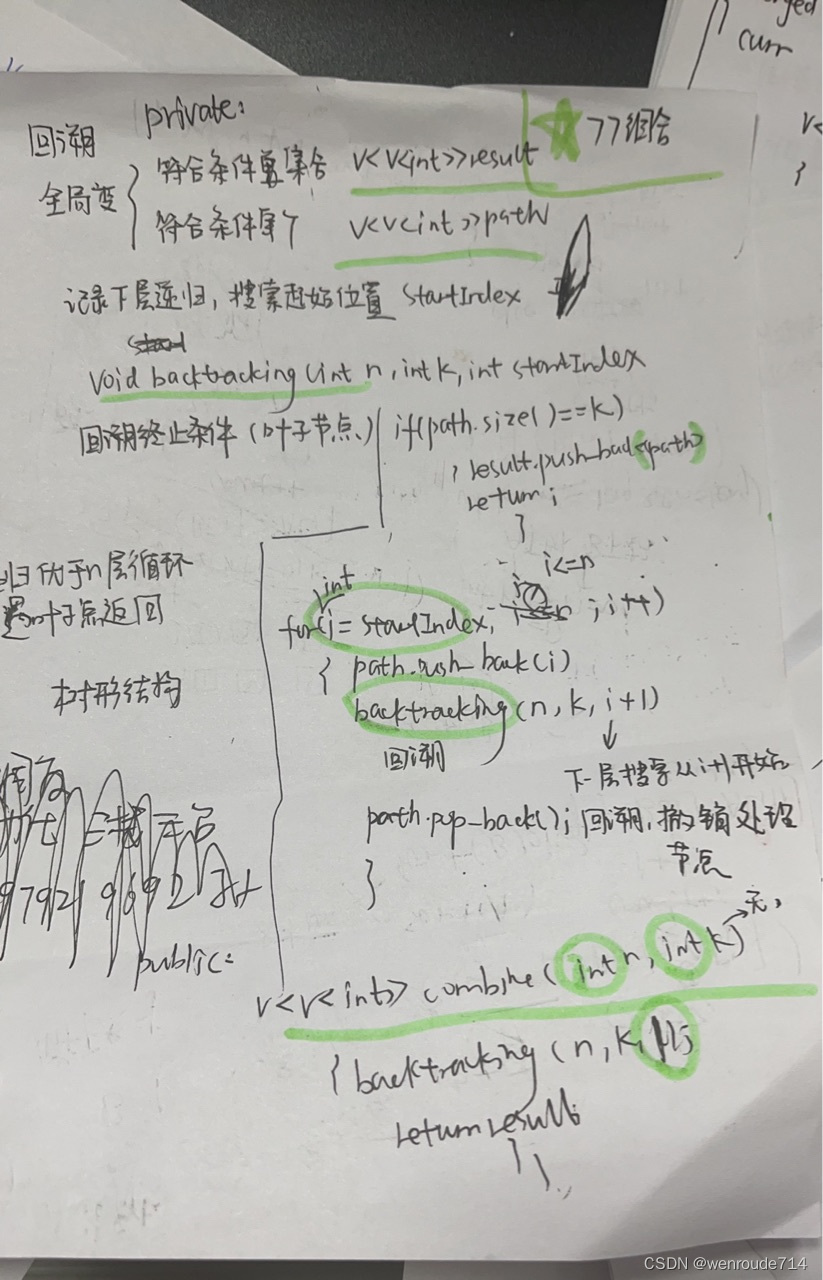 curr
private:
☆ 77组合
回溯
全局变
符合条件 集合 v<v<int>>result
符合条件 v<v<int>>path
记录下层递归,搜索起始位置 startIndex
void backtracking(int n, int k, int startIndex
回溯终止条件(叶子节点、) if(path.size()==k)
{ result.push_back(path)
return;
}
归优于n层循环
遇 叶子点返回
树形结构
i<=n
int
for(i= startIndex; ; i++)
{ path.push_back(i)
backtracking(n, k, i+1)
回溯
下一层搜索从i+1开始
path.pop_back(); 回溯,撤销处理
节点
}
public:
v<v<int>> combine(int n, int k) → 无;
{ backtracking(n, k, 1);
return result;
}
CSDN @wenroude714